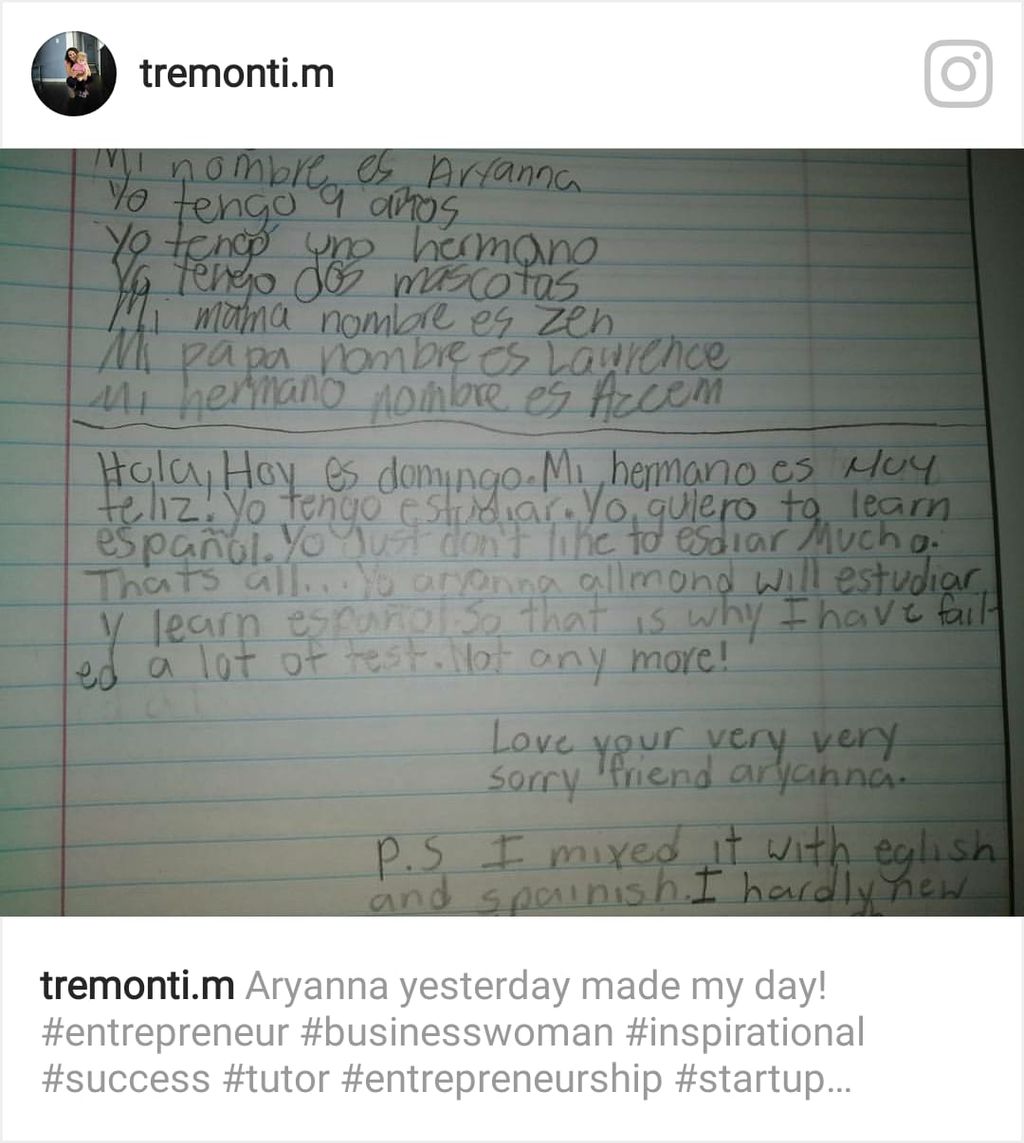 tremonti.m
Mi nombre es Aryanna
Yo tengo 9 años
Yo tengo uno hermano
Yo tengo dos mascotas
Mi mama nombre es Zen
Mi papa nombre es Lawrence
Mi hermano nombre es Azcem
Hola, Hoy es domingo. Mi hermano es Muy
feliz. Yo tengo estudiar. Yo quiero to learn
español. Yo Just don't like to esdiar Mucho.
Thats all... Yo aryanna allmond will estudiar
y learn español. So that is why I have fail
ed a lot of test. Not any more!
Love your very very
sorry friend aryanna.
P.S I mixed it with eglish
and spainish. I hardly new
tremonti.m Aryanna yesterday made my day!
#entrepreneur #businesswoman #inspirational
#success #tutor #entrepreneurship #startup...